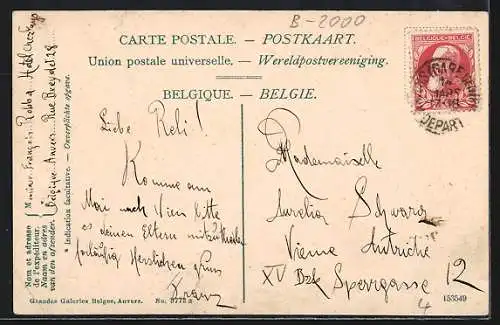 B-2000
CARTE POSTALE. — POSTKAART.
Union postale universelle. — Wereldpostvereeniging.
BELGIQUE. — BELGIE.
BELGIQUE-BELGIE
DEPART
Nom et adresse de l'expéditeur.
Naam en adres van den afzender.
Monsieur François Robba Hotel
Belgique Anvers Rue Breydel 28
* Indication facultative. — Onverplichte opgave.
Liebe Reli!
Komme am
Mai nach Wien bitte
es deinen Eltern mitzutheilen
vorläufig Herzlichen Gruss
Franz
Mademoiselle
Aurelia Schwarz
Vienne Autriche
XV Bzk Sperrgasse 12
4
Grandes Galeries Belges, Anvers. No. 3775 a
153549